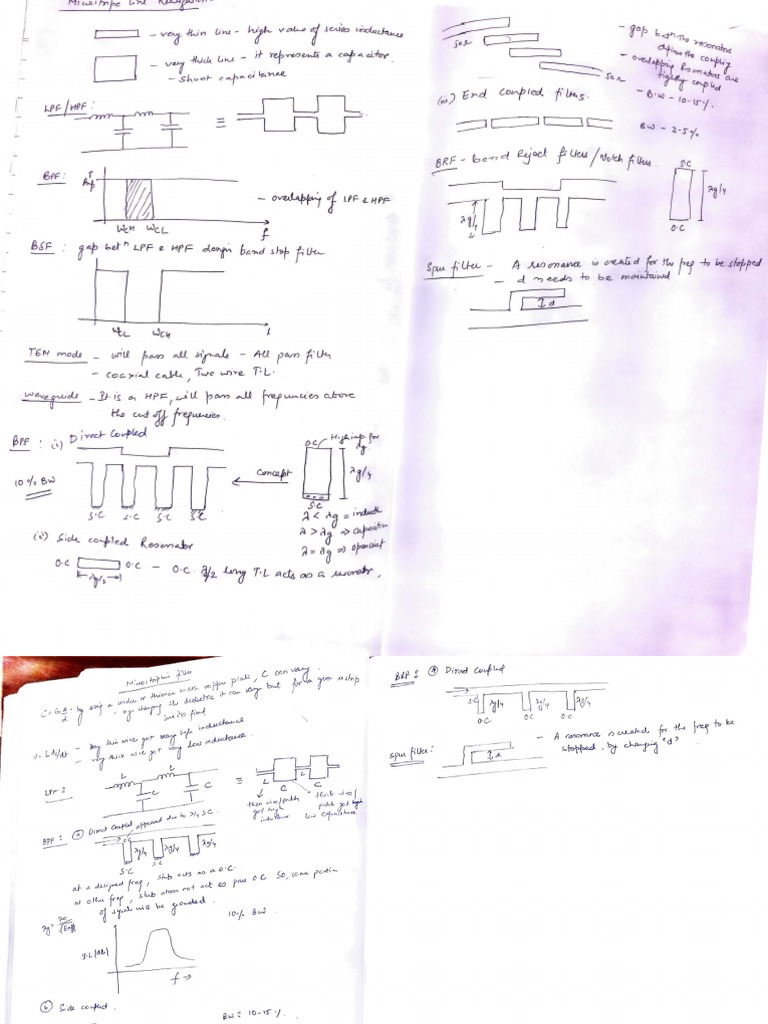 Microstripe Line Realization
- very thin line - high value of series inductance
- very thick line - it represents a capacitor.
- shunt capacitance
LPF/HPF:
≡
BPF:
Amp
- overlapping of LPF & HPF
WCH WCL f
BSF: gap betn LPF & HPF design band stop filter
WCL WCH f
TEM mode - will pass all signals - All pass filter
- coaxial cable, Two wire T.L.
Waveguide - It is a HPF, will pass all frequencies above
the cut off frequencies.
BPF: (i) Direct Coupled
10% BW
S.C S.C S.C S.C
Concept
O.C High imp for λg
λg/4
S.C
λ < λg = induct
λ > λg => capacitive
λ = λg => open ckt
(ii) Side coupled Resonator
O.C O.C - O.C λ/2 long T.L acts as a resonator.
λg/2
50Ω
50Ω
- gap betn the resonators
define the coupling
- overlapping Resonators are
tightly coupled
- B.W - 10-15%
(iii) End coupled filters.
BW - 2-5%
BRF - band Reject filters / Notch filters.
λg/4
S.C
λg/4
O.C
Spur filter - A resonance is created for the freq to be stopped
- d needs to be maintained
d
Microstripline filter
by using a wider or thinner width copper plate, C can vary.
by changing the dielectric it can vary but for a given μstrip
V = L di/dt - very thin wire got very high inductance
- very thick wire got very low inductance.
L L
C C
≡
L L
C C
thin wire/path
got high
inductance
thick wire/
patch got high
capacitance
BPF: (a) Direct Coupled
O.C appeared due to λ/4 S.C.
λg/4 λg/4 λg/4
S.C S.C
at a designed freq, stub acts as a O.C.
at other freq, stub does not act as pure O.C. So, some portion
of signal will be grounded.
λg = λo/√εeff
10% BW
I.L (dB)
f →
(b) Side coupled.
BW = 10-15%.
BRF: (a) Direct Coupled
S.C λg/4 λg/4 λg/4
O.C O.C O.C
Spur filter:
d
- A resonance is created for the freq to be
stopped. by changing "d"